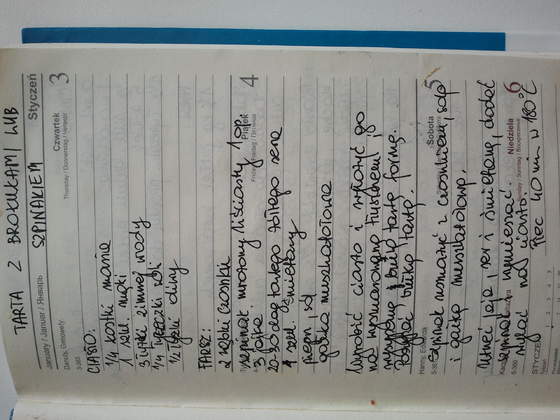 TARTA Z BROKUŁAMI LUB
SZPINAKIEM
Styczeń
January / Januar / Январь
3
Czwartek
Thursday / Donnerstag /
CIASTO:
1/4 kostki masła
1 szkl mąki
3 łyżki zimnej wody
1/4 łyżeczki soli
1/2 łyżki oliwy
FARSZ:
2 ząbki czosnku
4
Piątek
szpinak mrożony liściasty 1 op.
2 jajka
20 dag tartego żółtego sera
1 szkl śmietany
pieprz, sól
gałka muszkatołowa
Wyrobić ciasto i wyłożyć go
na wysmarowaną tłuszczem i
wysypaną bułką tartą formę.
bułką tartą.
5
Sobota
Szpinak usmażyć z czosnkiem, solą
i gałką muszkatołową.
Ubić jaja, ser i śmietanę, dodać
6
Niedziela
szpinak i wymieszać.
Wylać na ciasto.
Piec 40 min w 180°C
STYCZEŃ